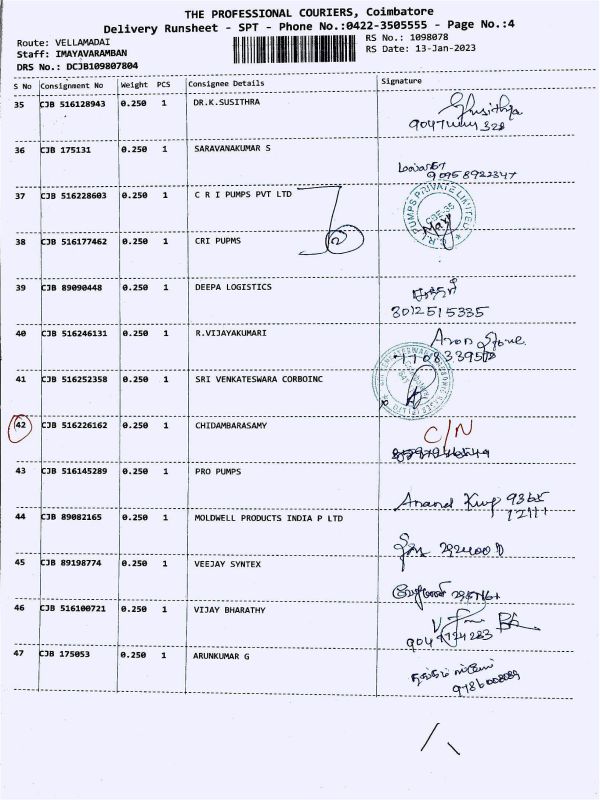 THE PROFESSIONAL COURIERS, Coimbatore
Delivery Runsheet - SPT - Phone No.:0422-3505555 - Page No.:4
Route: VELLAMADAI
Staff: IMAYAVARAMBAN
DRS No.: DCJB109807804
RS No.: 1098078
RS Date: 13-Jan-2023
S No Consignment No Weight PCS Consignee Details Signature
35 CJB 516128943 0.250 1 DR.K.SUSITHRA
36 CJB 175131 0.250 1 SARAVANAKUMAR S
90958922347
37 CJB 516228603 0.250 1 C R I PUMPS PVT LTD
C.R.I PUMPS PRIVATE LIMITED
38 CJB 516177462 0.250 1 CRI PUPMS
2
39 CJB 89090448 0.250 1 DEEPA LOGISTICS
8012515335
40 CJB 516246131 0.250 1 R.VIJAYAKUMARI
41 CJB 516252358 0.250 1 SRI VENKATESWARA CORBOINC
42 CJB 516226162 0.250 1 CHIDAMBARASAMY
C/N
43 CJB 516145289 0.250 1 PRO PUMPS
Anand 9365
44 CJB 89082165 0.250 1 MOLDWELL PRODUCTS INDIA P LTD
45 CJB 89198774 0.250 1 VEEJAY SYNTEX
46 CJB 516100721 0.250 1 VIJAY BHARATHY
47 CJB 175053 0.250 1 ARUNKUMAR G